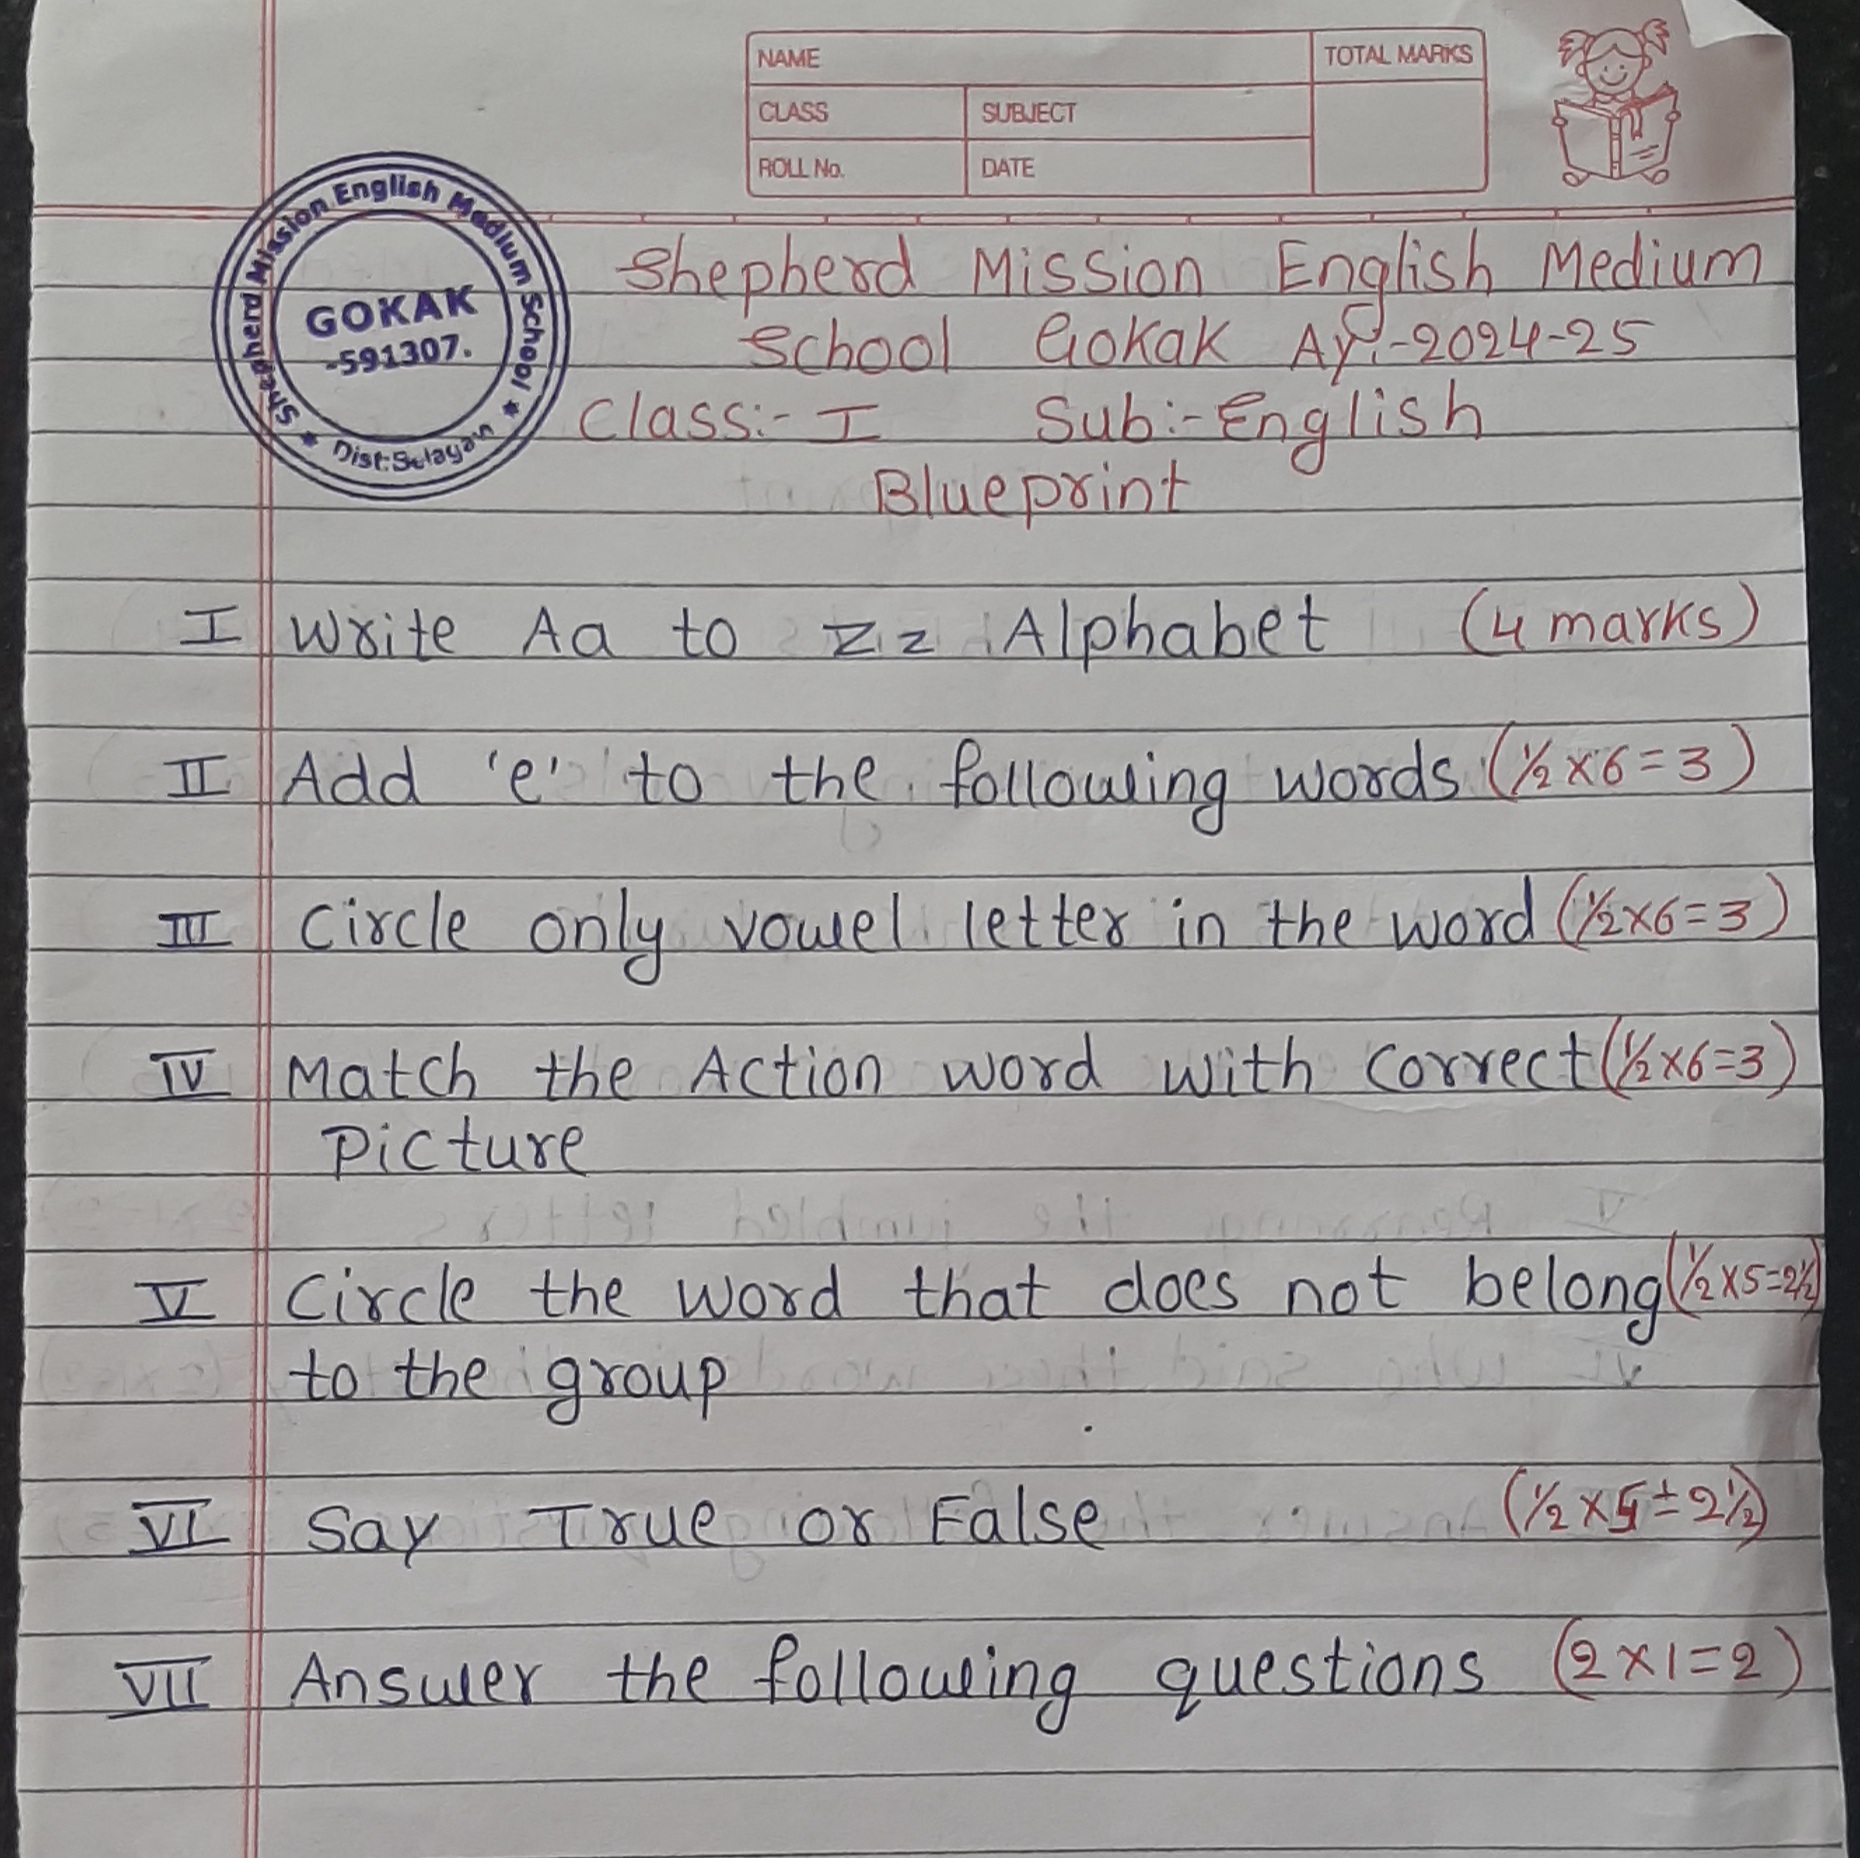 NAME
TOTAL MARKS
CLASS
SUBJECT
ROLL No.
DATE
Shepherd Mission English Medium School
GOKAK
-591307.
Dist:Belagavi
Shepherd Mission English Medium
School Gokak AY:-2024-25
Class:- I Sub:-English
Blueprint
I Write Aa to Zz Alphabet (4 marks)
II Add 'e' to the following words (½×6=3)
III Circle only vowel letter in the word (½×6=3)
IV Match the Action word with correct (½×6=3)
Picture
V Circle the word that does not belong (½×5=2½)
to the group
VI Say True or False (½×5=2½)
VII Answer the following questions (2×1=2)